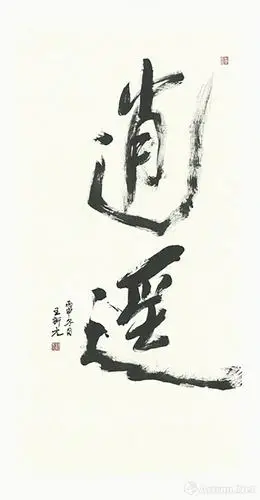 逍遥
丙申冬月
王新元
Artron.Net